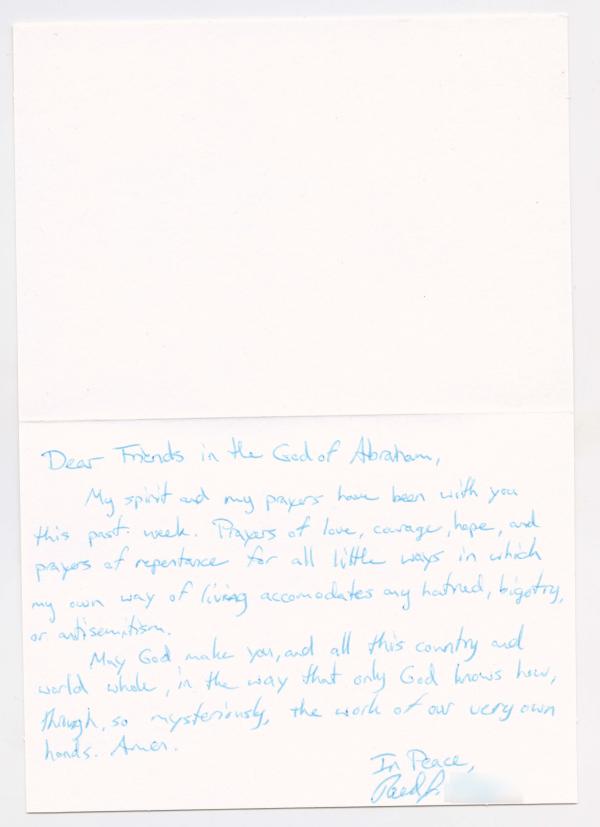 Dear Friends in the God of Abraham,
My spirit and my prayers have been with you
this past week. Prayers of love, courage, hope, and
prayers of repentance for all little ways in which
my own way of living accomodates any hatred, bigotry,
or antisemitism.
May God make you, and all this country and
world whole, in the way that only God knows how,
through, so mysteriously, the work of our very own
hands. Amen.
In Peace,